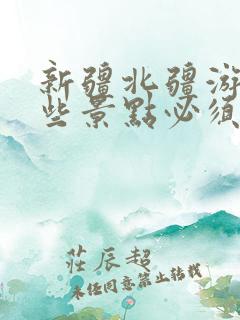 新疆北疆游
些景點必須
莊辰超
未经同意禁止转载